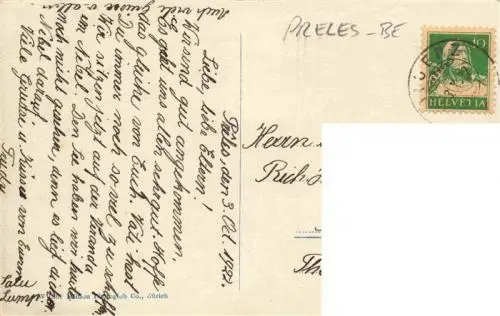 PRELES-BE
10
HELVETIA
Prêles, den 3. Oct. 1921.
Liebe, liebe Eltern!
Wir sind gut angekommen.
Es geht uns allen sehr gut. Hoffe
das gleiche von Euch. Vati, hast
Du immer noch so viel zu schaffen
Wir sitzen jetzt auf der Veranda
im Nebel. Den See haben wir noch
nicht gesehen, denn es liegt dicker
Nebel darauf.
Viele Grüsse und Küsse von Eurem
Trudi
Auch viele Grüsse v. allen
Herrn
Co., Zürich